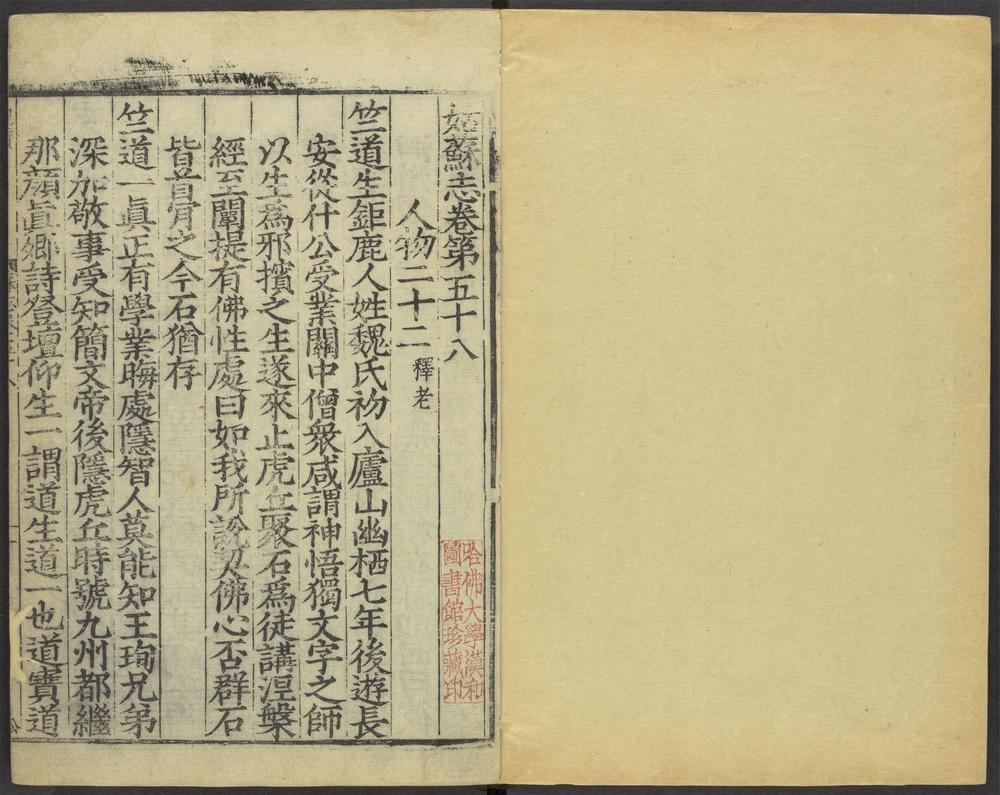 姑蘇志卷第五十八
人物二十二 釋老
竺道生鉅鹿人姓魏氏初入廬山幽栖七年後遊長
安從什公受業關中僧衆咸謂神悟獨文字之師
以生爲邪擯之生遂來止虎丘聚石爲徒講涅槃
經至闡提有佛性處曰如我所說契佛心否群石
皆首肯之今石猶存
竺道一眞正有學業晦處隱智人莫能知王珣兄弟
深加敬事受知簡文帝後隱虎丘時號九州都維
那顔眞卿詩登壇仰生一謂道生道一也道寶道
哈佛大學漢和
圖書館珍藏印